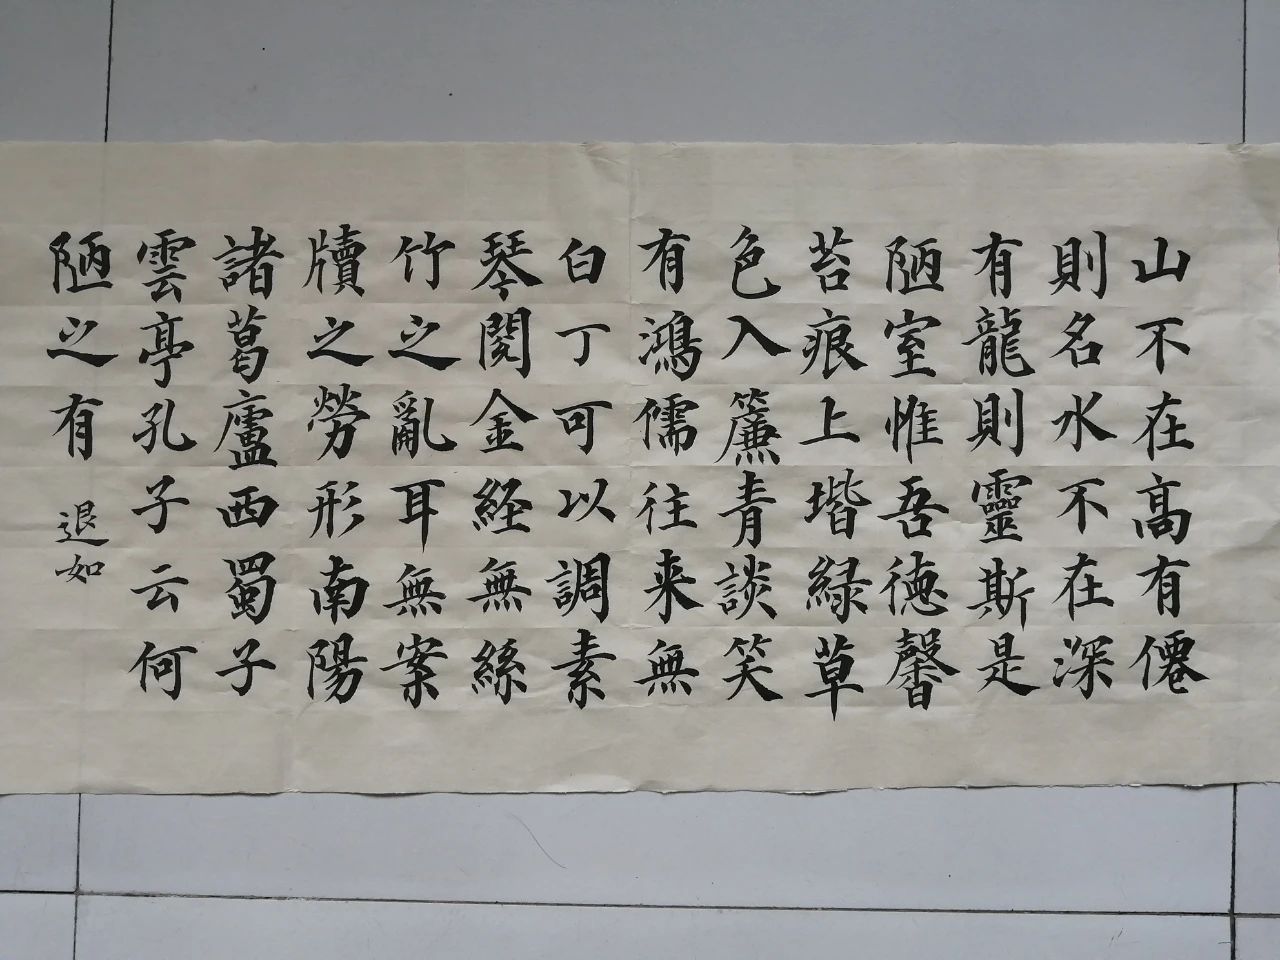 山不在高有僊
則名水不在深
有龍則靈斯是
陋室惟吾德馨
苔痕上堦緑草
色入簾青談笑
有鴻儒往来無
白丁可以調素
琴閱金経無絲
竹之亂耳無案
牘之勞形南陽
諸葛廬西蜀子
雲亭孔子云何
陋之有
退如